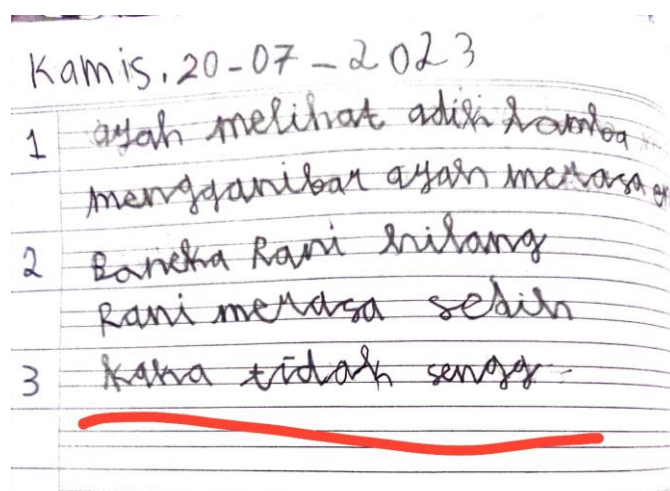 Kamis, 20-07-2023
1 ayah melihat adik lomba
menggambar ayah merasa
2 Boneka Rani hilang
Rani merasa sedih
3 Kaka tidak sengg-